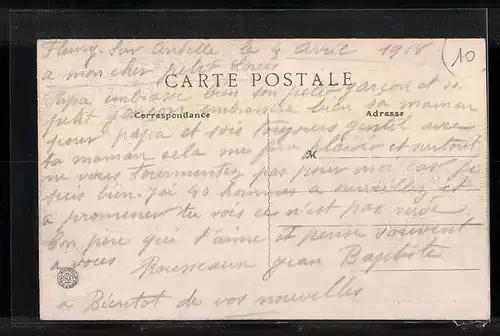 Fleury sur Andelle le 4 avril 1918
10
a mon cher petit Louis
CARTE POSTALE
Papa embrasse bien son petit garçon et ce
petit garçon embrassera bien sa maman
Correspondance
Adresse
pour papa et sois toujours gentil avec
ta maman cela me fera plaisir et surtout
M
ne vous tourmentez pas pour moi car je
suis bien. j'ai 40 hommes a surveillez et
a promener tu vois ce n'est pas rude
ton père qui t'aime et pense souvent
a vous Rousseaux Jean Baptiste
a Bientot de vos nouvelles